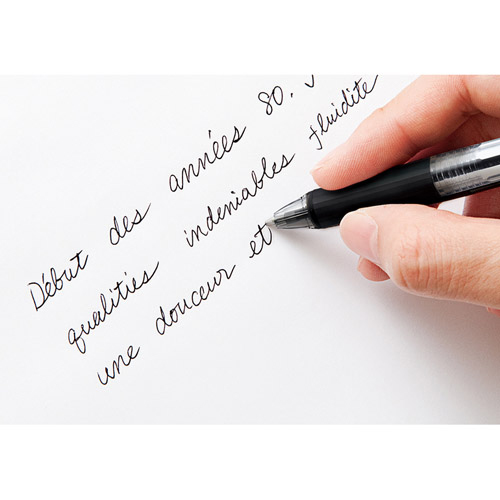 Début des années 80.
qualities indeniables fluidite
une douceur et